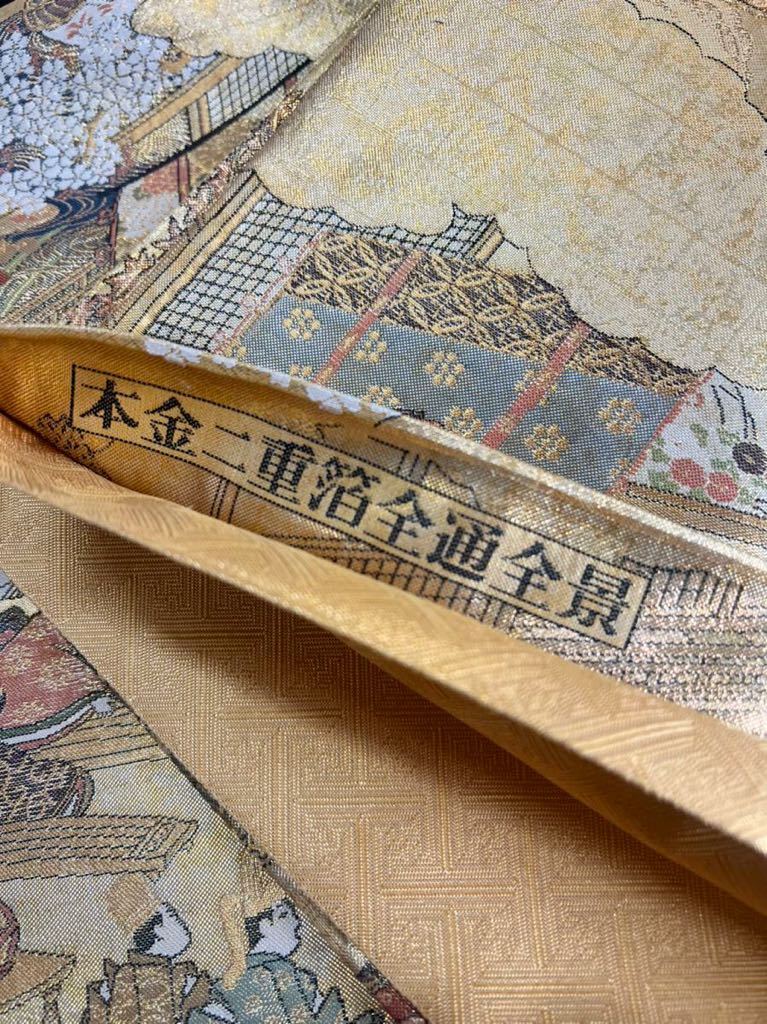 本金二重箔全通全景